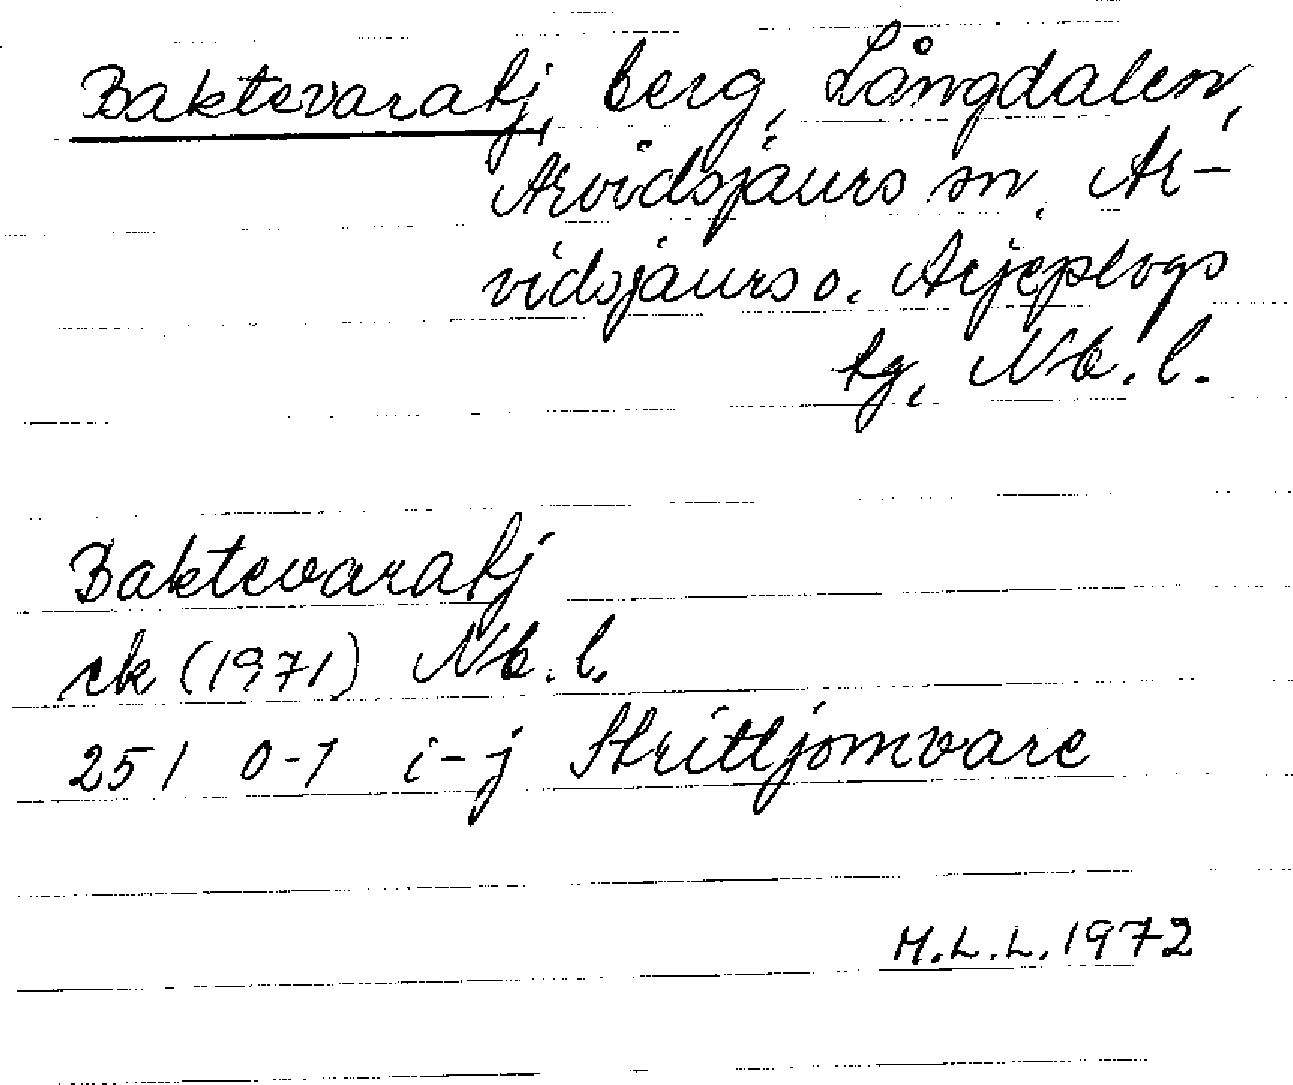 Baktevaratj, berg, Långdalen,
Arvidsjaurs sn, Ar-
vidsjaurs o. Arjeplogs
tg, Nb. l.
Baktevaratj
rk (1971) Nb. l.
25 I 0-1 i-j Strittjomvare
M.L.L. 1972